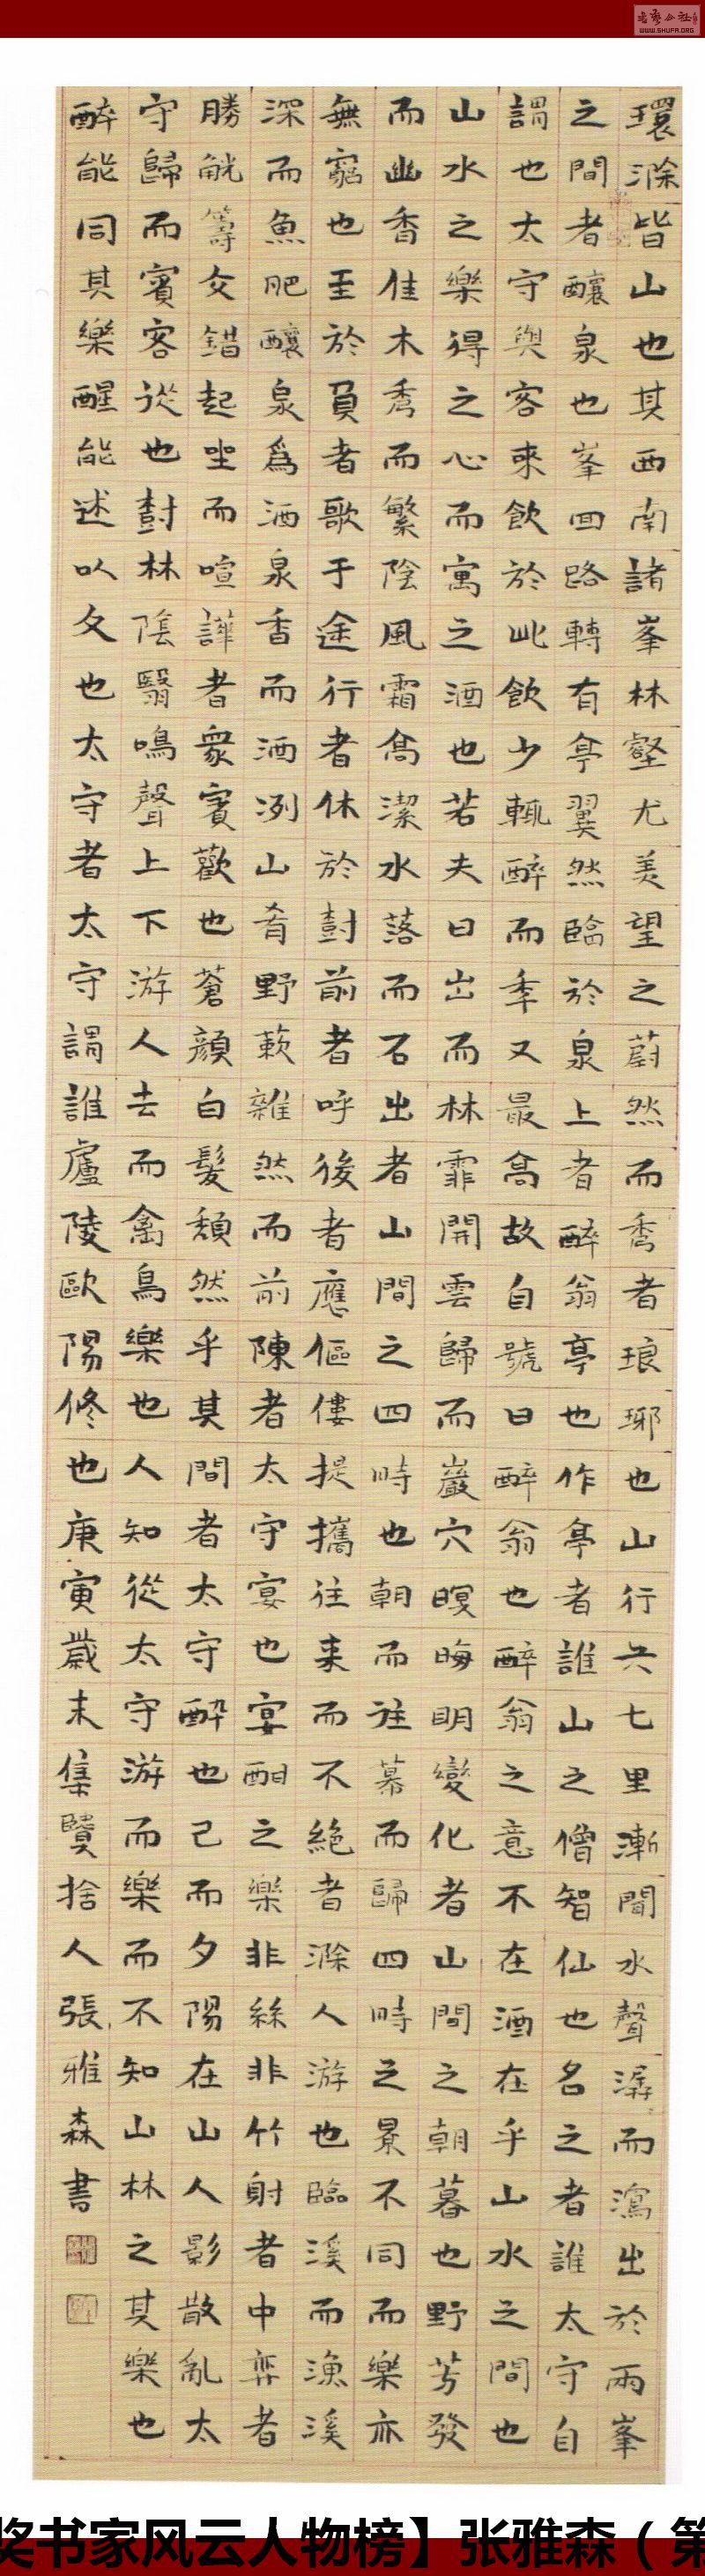 WWW.SHUFA.ORG
環滁皆山也其西南諸峯林壑尤美望之蔚然而秀者琅琊也山行六七里漸聞水聲潺而瀉出於兩峯
之間者釀泉也峯回路轉有亭翼然臨於泉上者醉翁亭也作亭者誰山之僧智仙也名之者誰太守自
謂也太守與客來飲於此飲少輒醉而年又最高故自號曰醉翁也醉翁之意不在酒在乎山水之間也
山水之樂得之心而寓之酒也若夫日出而林霏開雲歸而巖穴暝晦明變化者山間之朝暮也野芳發
而幽香佳木秀而繁陰風霜高潔水落而石出者山間之四時也朝而往暮而歸四時之景不同而樂亦
無窮也至於負者歌于途行者休於樹前者呼後者應傴僂提攜往來而不絕者滁人游也臨溪而漁溪
深而魚肥釀泉爲酒泉香而酒洌山肴野蔌雜然而前陳者太守宴也宴酣之樂非絲非竹射者中弈者
勝觥籌交錯起坐而喧譁者衆賓歡也蒼顏白髮頹然乎其間者太守醉也已而夕陽在山人影散亂太
守歸而賓客從也樹林陰翳鳴聲上下游人去而禽鳥樂也人知從太守游而樂而不知山林之其樂也
醉能同其樂醒能述以文也太守者太守謂誰廬陵歐陽修也庚寅歲末集賢捨人張雅森書
奖书家风云人物榜】张雅森（第